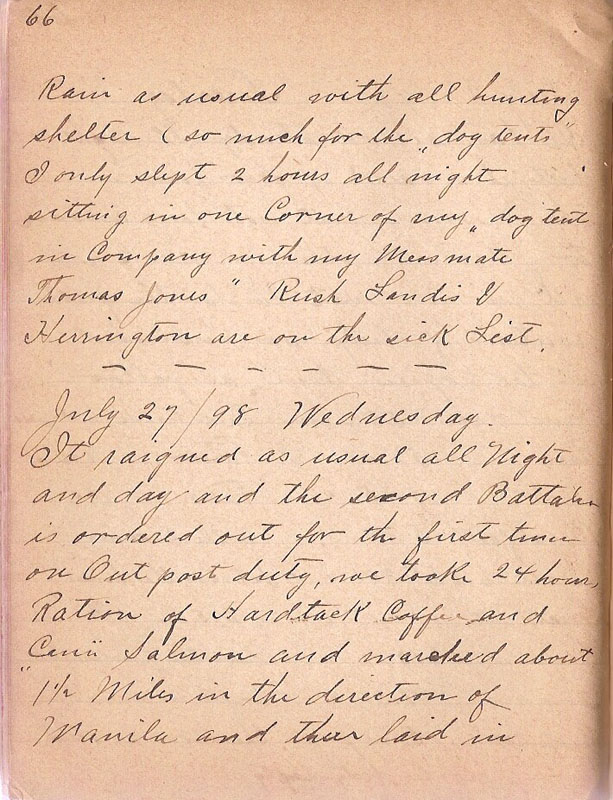 66
Rain as usual with all hunting
shelter ( so much for the "dog tents"
I only slept 2 hours all night
sitting in one Corner of my "dog tent
in Company with my Messmate
Thomas Jones" Rush Landis &
Herrington are on the sick List.
July 27/98 Wednesday.
It raigned as usual all Night
and day and the second
is ordered out for the first time
on Out post duty, we tooke 24 hours
Ration of Hardtack Coffee and
Salmon and marched about
"1½ Miles in the direction of
Manila and then laid in